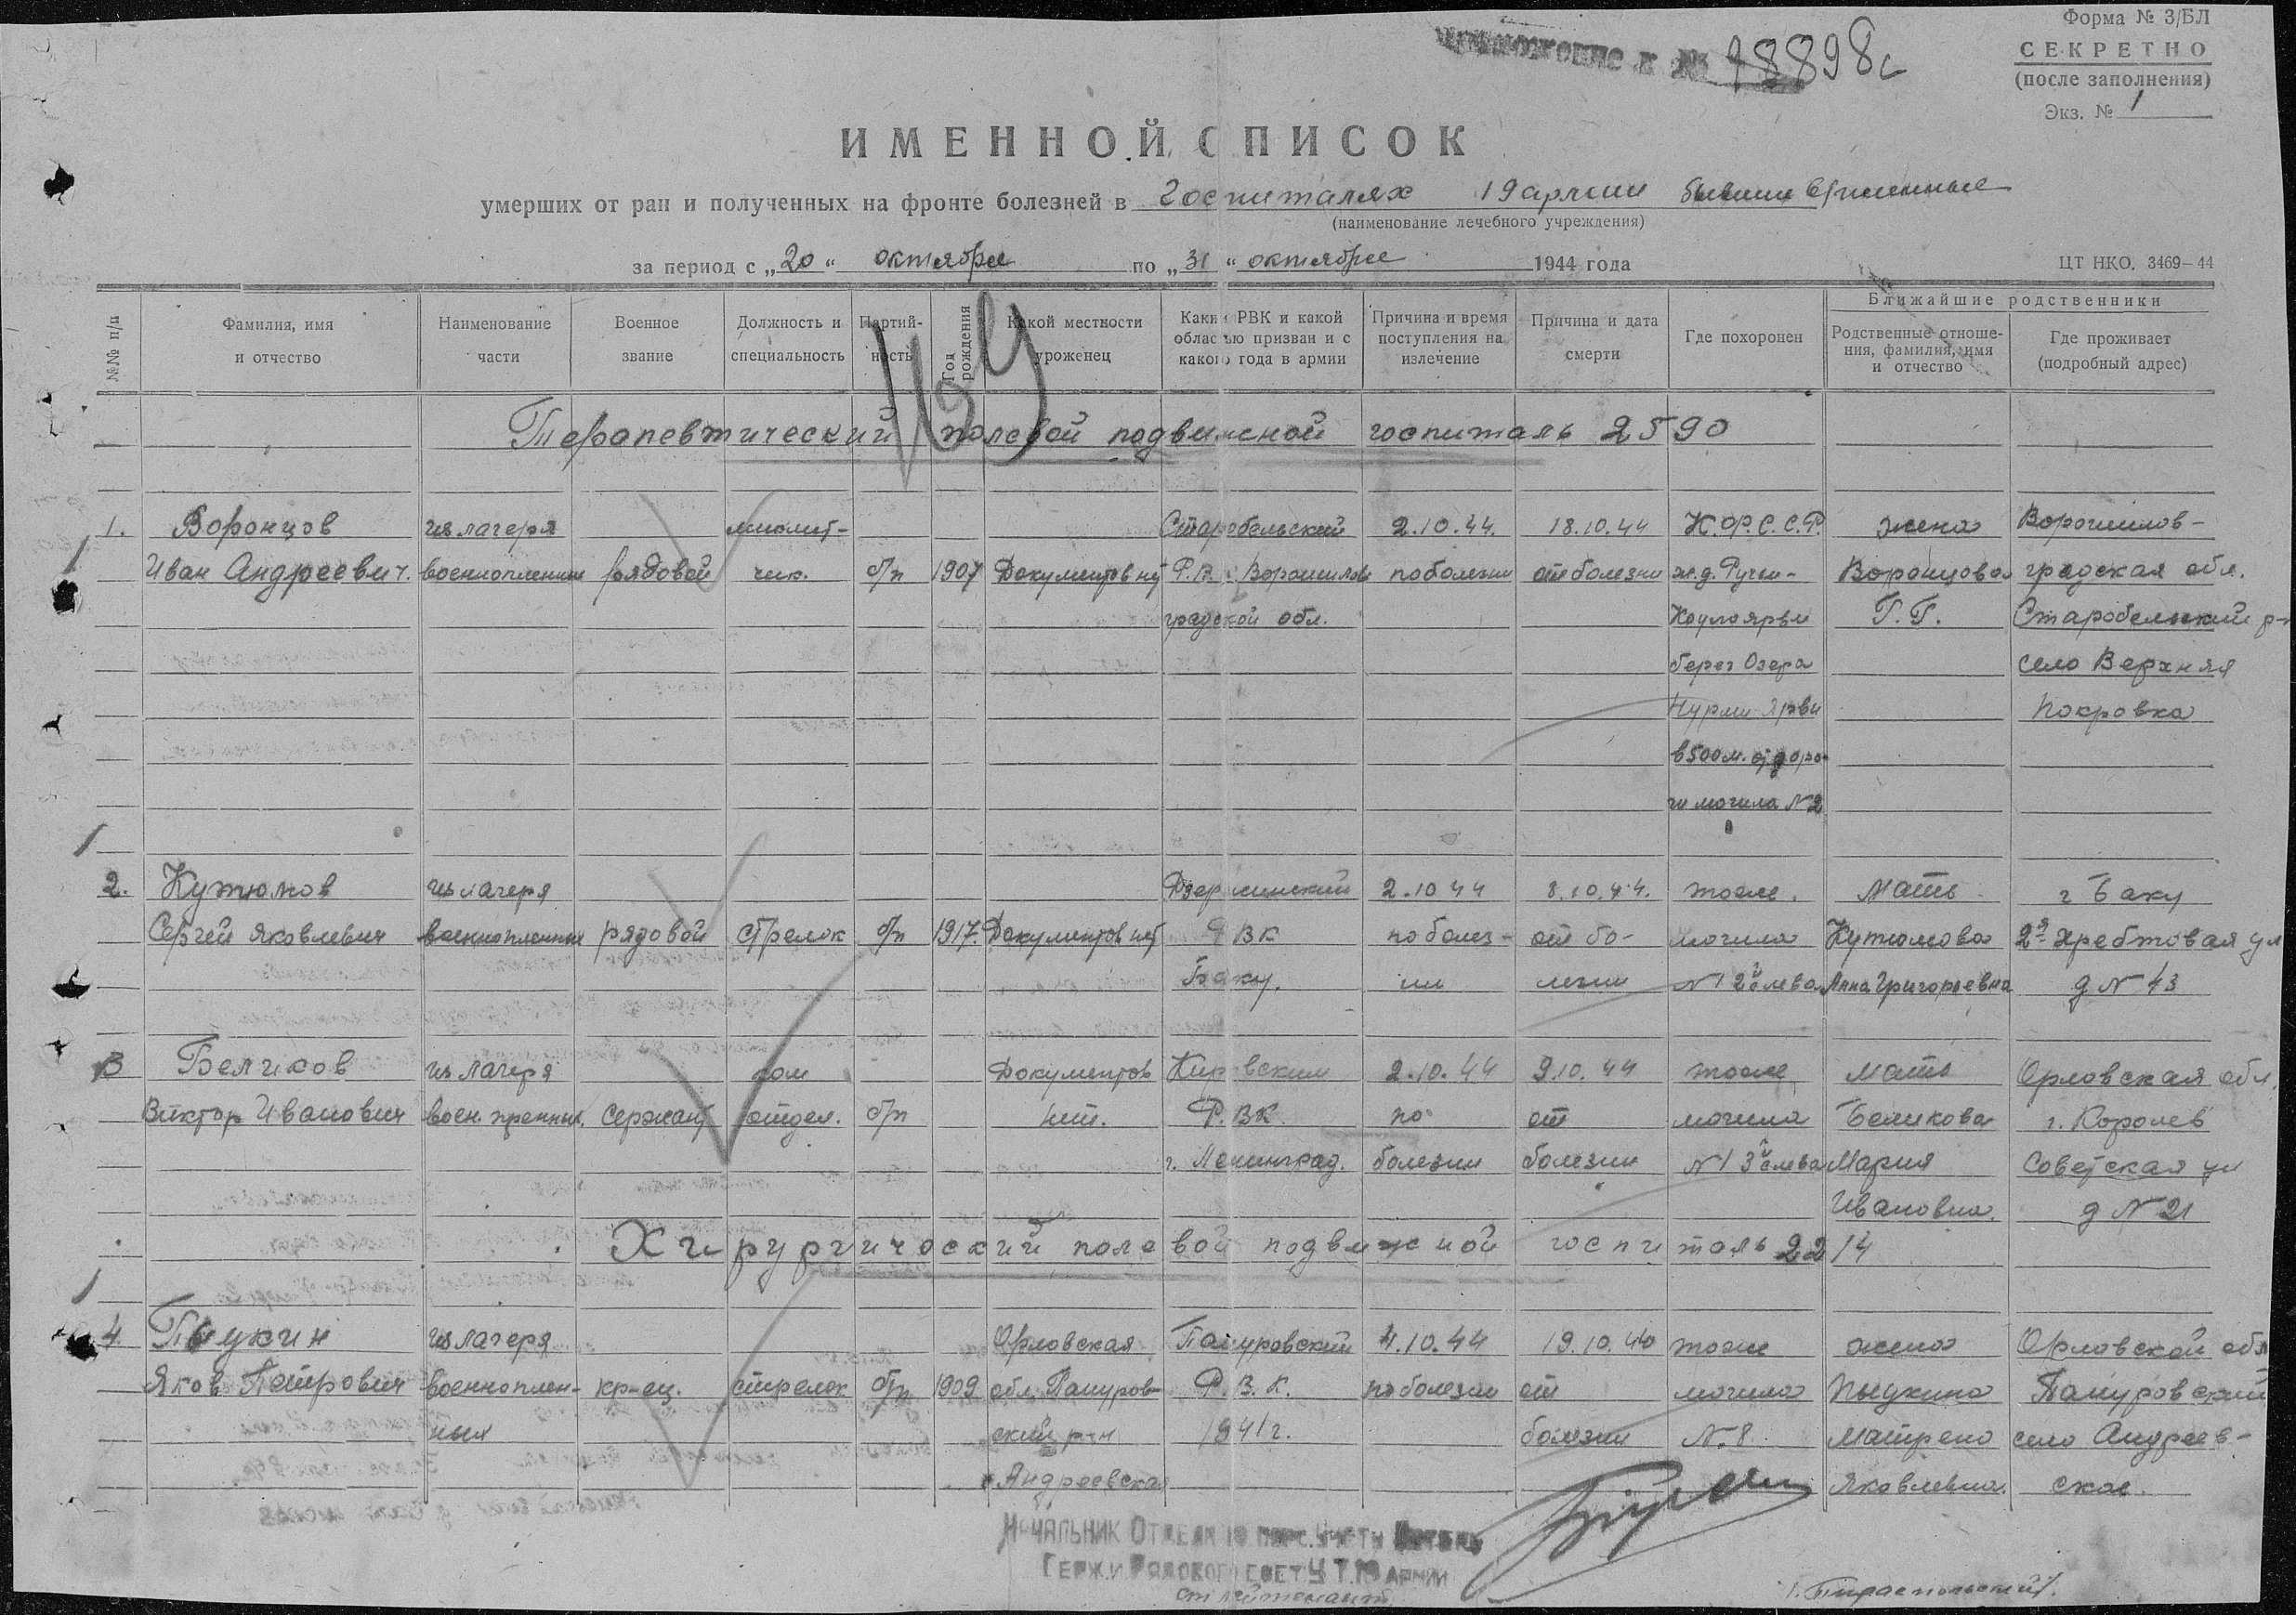 Форма № 3/БЛ
СЕКРЕТНО
(после заполнения)
Экз. № 1
к № 18898с
ИМЕННОЙ СПИСОК
умерших от ран и полученных на фронте болезней в госпиталях 19 армии бывшие
(наименование лечебного учреждения)
за период с „20“ октября по „31“ октября 1944 года
ЦТ НКО. 3469—44
№№ п/п
Фамилия, имя и отчество
Наименование части
Военное звание
Должность и специальность
Партийность
Год рождения
Какой местности уроженец
Каким РВК и какой областью призван и с какого года в армии
Причина и время поступления на излечение
Причина и дата смерти
Где похоронен
Ближайшие родственники
Родственные отношения, фамилия, имя и отчество
Где проживает (подробный адрес)
Терапевтический полевой подвижной госпиталь 2590
1. Воронцов из лагеря Старобельский 2.10.44. 18.10.44 К.Ф.С.С.Р. жена Ворошилов-
Иван Андреевич. военнопленных рядовой б/п 1907 Документов нет Р.В. Ворошилов по болезни от болезни ж.д. Ручьи- Воронцова градская обл.
градской обл. Коулоярви Г.Г. Старобельский р-н
берег Озера село Верхняя
Нурми Ярви Покровка
в 500 м. от доро-
ги могила № 2
2. Кутюмов из лагеря Дзержинский 2.10 44 8.10.44. тоже. Мать г Баку
Сергей Яковлевич военнопленных рядовой стрелок б/п 1917. Документов нет РВК по болез- от бо- могила Кутюмова 2я Хребтовая ул
Баку. ни лезни № 1 2й слева Анна Григорьевна д № 43
3 Беликов из лагеря ком Документов Кировским 2.10.44 9.10.44 тоже Мать Орловская обл.
Виктор Иванович воен. пленных. сержант отдел. б/п нет. Р.ВК по от могила Беликова г. Королев
г. Ленинград. болезни болезни № 1 3й слева Мария Советская ул
Ивановна. д № 21
Хирургический полевой подвижной госпиталь 2214
4. Пыукин из лагеря Орловская 4.10.44 19.10.44 тоже жена Орловской обл
Яков Петрович военноплен- кр-ец. стрелок б/п 1909 обл. Р.В.К. по болезни от могила Пыукина
ных ский р-н 1941 г. болезни № 8. Матрена село Андреев-
Андреевская Яковлевна. ское.
НАЧАЛЬНИК ОТДЕЛА ПО ПЕРС. УЧЕТУ ПОТЕРЬ
СЕРЖ. И РЯДОВОГО СОСТ УТ 19 АРМИИ
ст лейтенант
/.Тираспольский/.